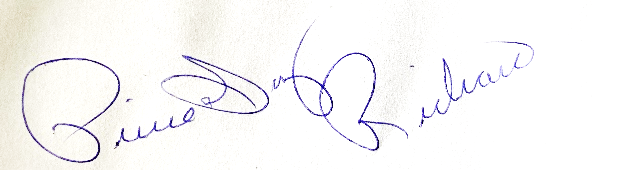 Pierre Guy Richard